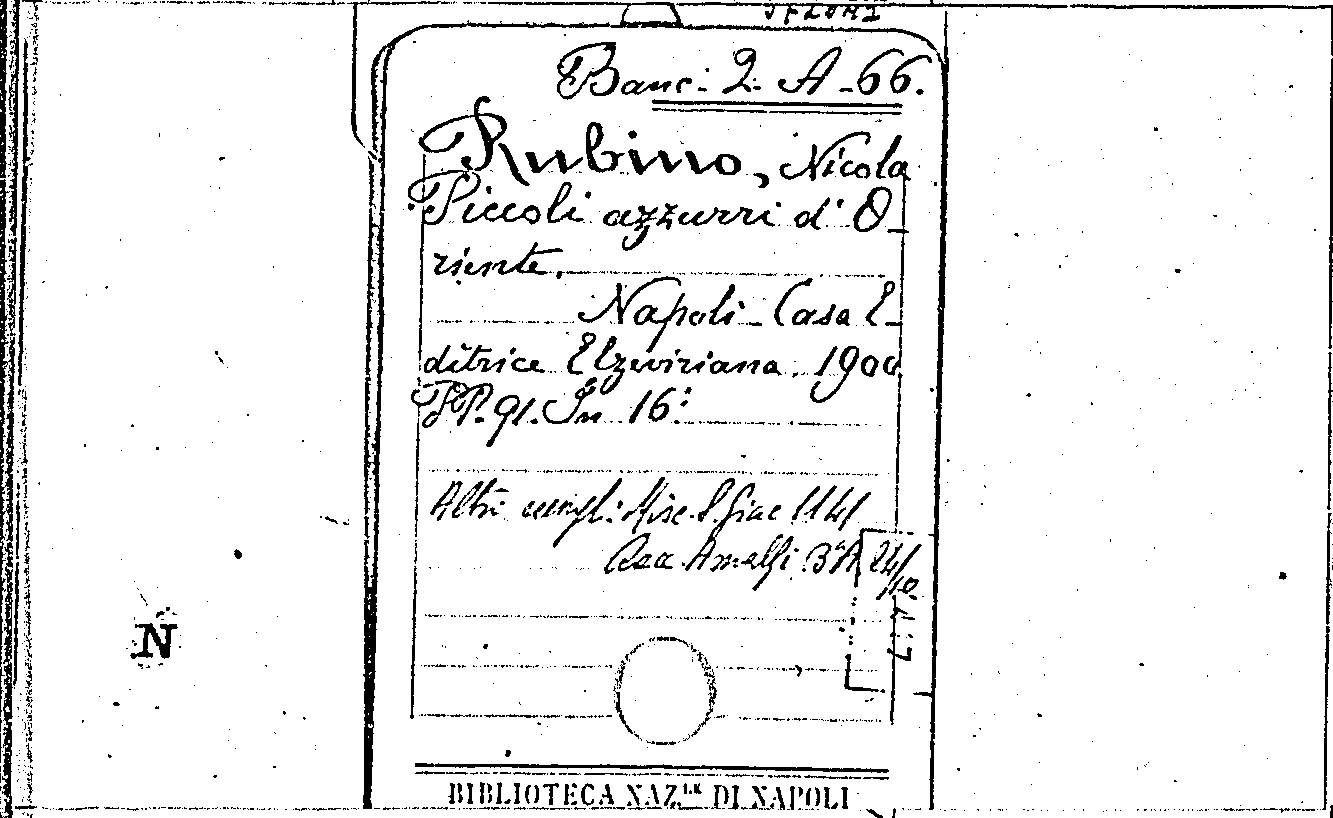 Banc. 2. A-66.
Rubino, Nicola
Piccoli azzurri d'O-
riente.
Napoli - Casa E-
ditrice Elzeviriana. 1900
PP. 91. In 16°
Altri esempl: Misc. S. Giac 1141
Rac. Amalfi B A 24/10
L.P.7
N
BIBLIOTECA NAZ.LE DI NAPOLI